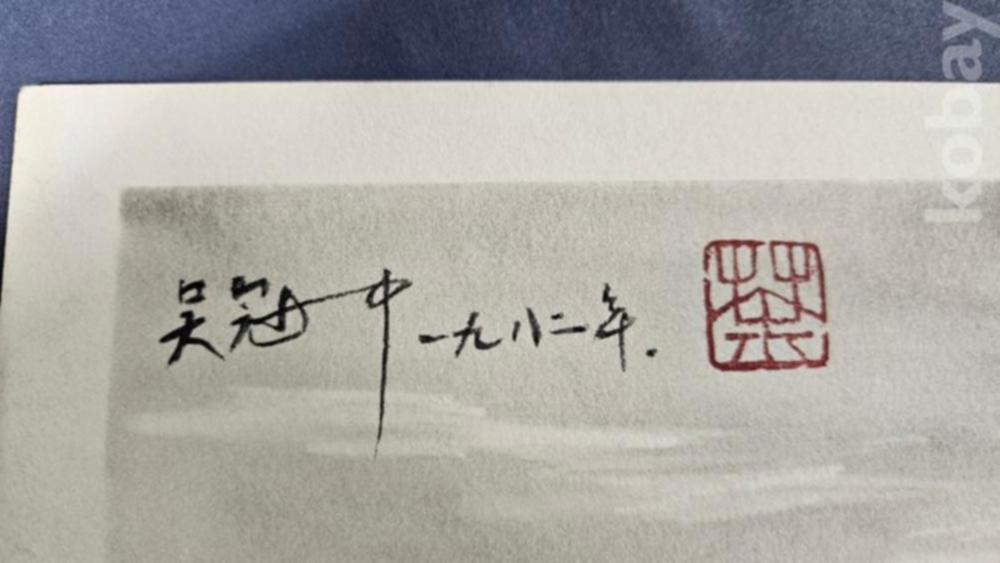 吴冠中 一九八二年.
荼
kobay